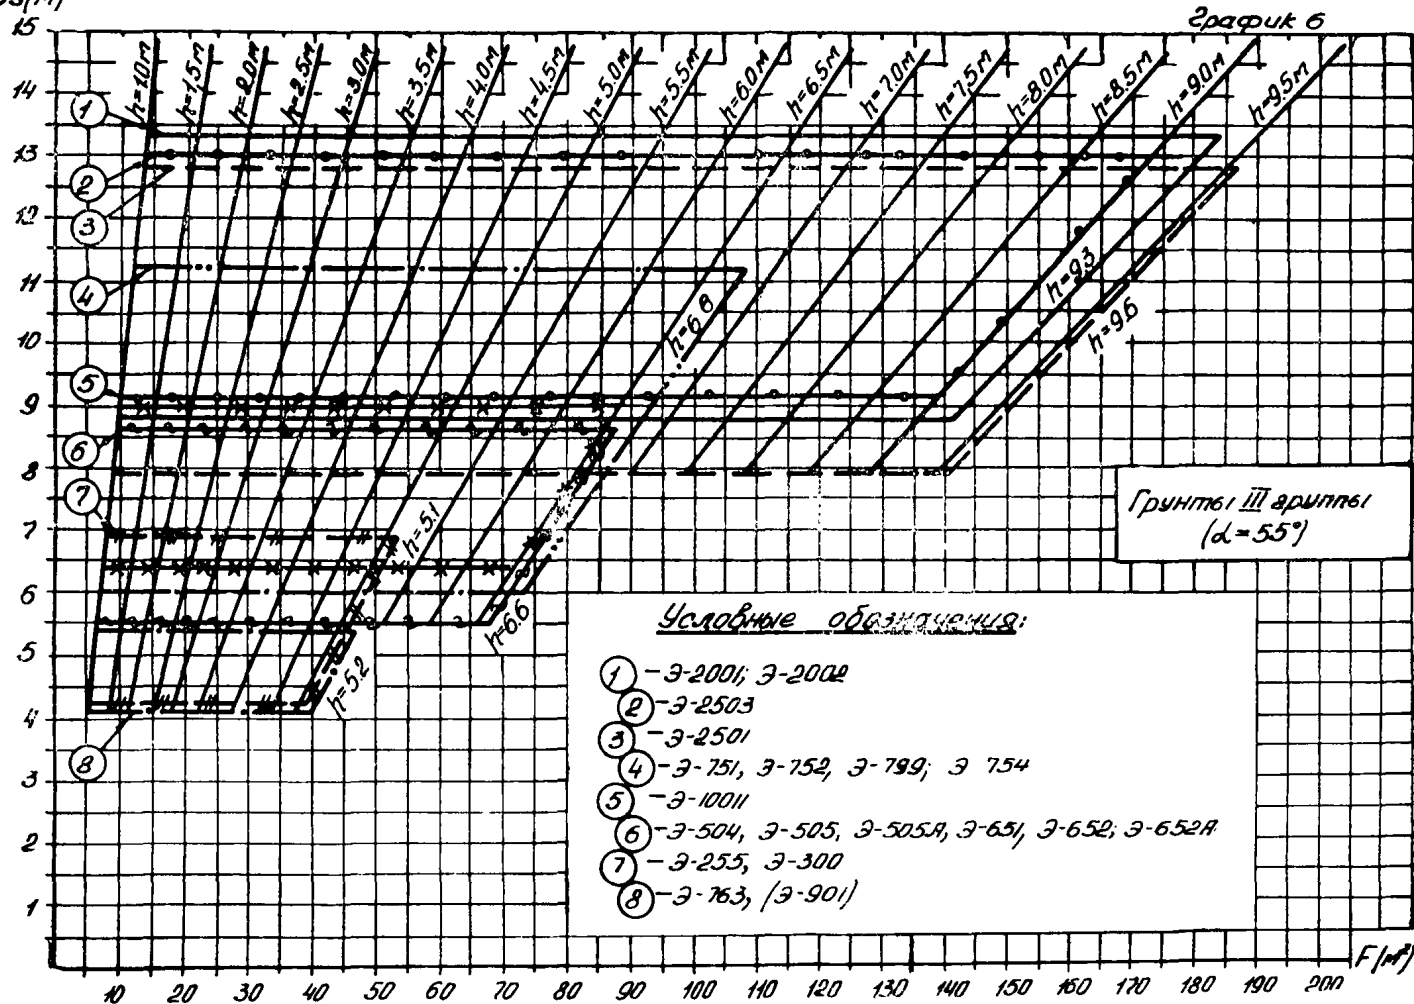 График 6
15
14
13
12
11
10
9
8
7
6
5
4
3
2
1
h=1.0м h=1,5м h=2.0м h=2.5м h=3.0м h=3.5м h=4.0м h=4.5м h=5.0м h=5.5м h=6.0м h=6.5м h=7.0м h=7,5м h=8.0м h=8,5м h=9.0м h=9.5м
1
2
3
4
5
6
7
8
h=6.8
h=9.3
h=9.6
h=5.1
h=6.6
h=5.2
Грунты III группы
(α=55°)
Условные обозначения:
1 -Э-2001; Э-2002
2 -Э-2503
3 -Э-2501
4 -Э-751, Э-752, Э-799; Э 754
5 -Э-10011
6 -Э-504, Э-505, Э-505А, Э-651, Э-652; Э-652А
7 -Э-255, Э-300
8 -Э-763, (Э-901)
10 20 30 40 50 60 70 80 90 100 110 120 130 140 150 160 170 180 190 200 F(м²)